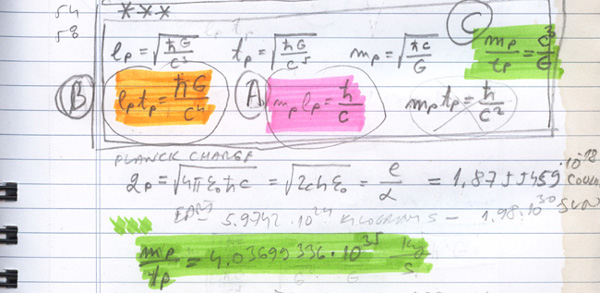 54 ***
58
lp = √ħG/c³ tp = √ħG/c⁵ mp = √ħc/G C mp/tp = c³/G
B lp tp = ħG/c⁴ A mp lp = ħ/c mp tp = ħ/c²
PLANCK CHARGE
qp = √4πε₀ħc = √2chε₀ = e/α = 1,8755459 · 10⁻¹⁸ COUL
5.9742 · 10²⁴ KILOGRAMS — 1.98 · 10³⁰ SUN
mp/tp = 4,03699336 · 10³⁵ kg/s